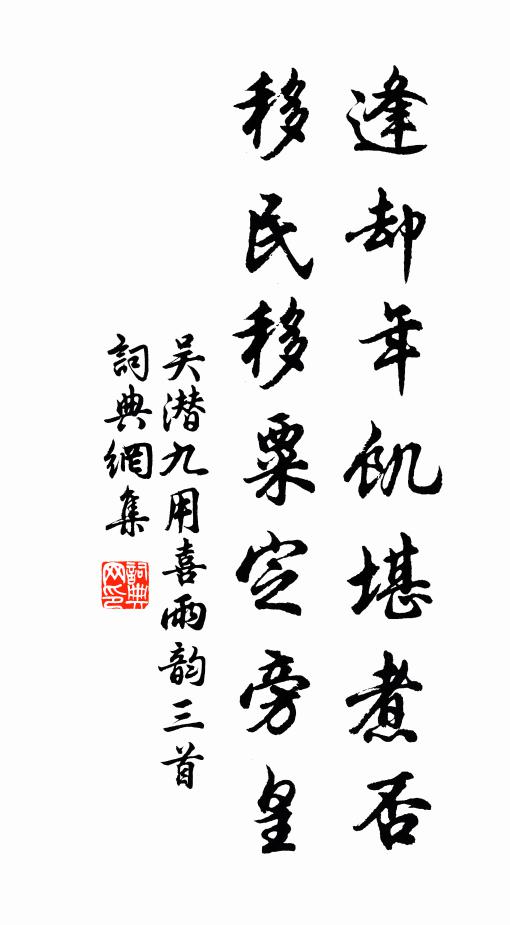 逢却年饥堪煮否
移民移粟定旁皇
吴潜九用喜雨韵三首
詞典網集
詞典网印